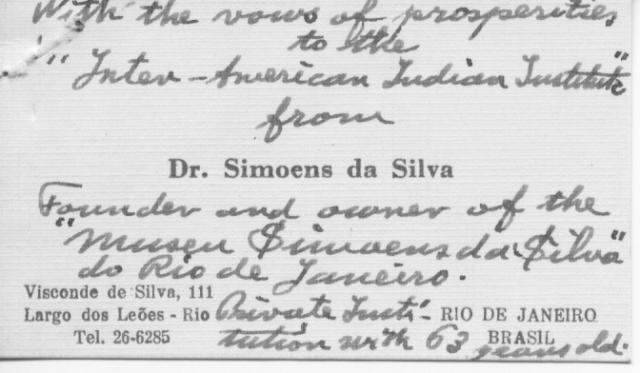 With the vows of prosperities
to the
"Inter-American Indian Institute"
from
Dr. Simoens da Silva
Founder and owner of the
"Museu Simoens da Silva"
do Rio de Janeiro.
Visconde de Silva, 111
Largo dos Leões - Rio Private Insti- RIO DE JANEIRO
Tel. 26-6285 tution with 63 years old. BRASIL